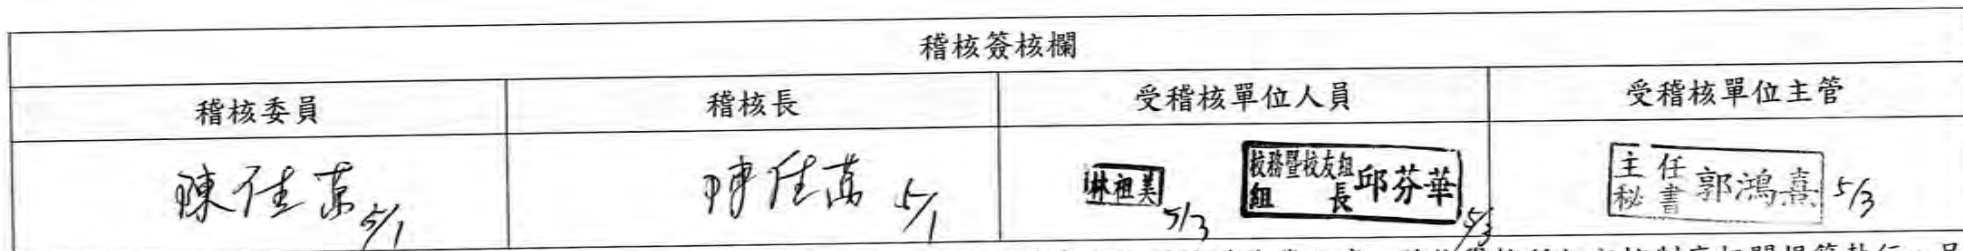 稽核簽核欄
稽核委員 稽核長 受稽核單位人員 受稽核單位主管
陳佳萬 5/1
陳佳萬 5/1
林祖美 5/3
校務暨校友組
組長 邱芬華 5/3
主任
秘書 郭鴻熹 5/3